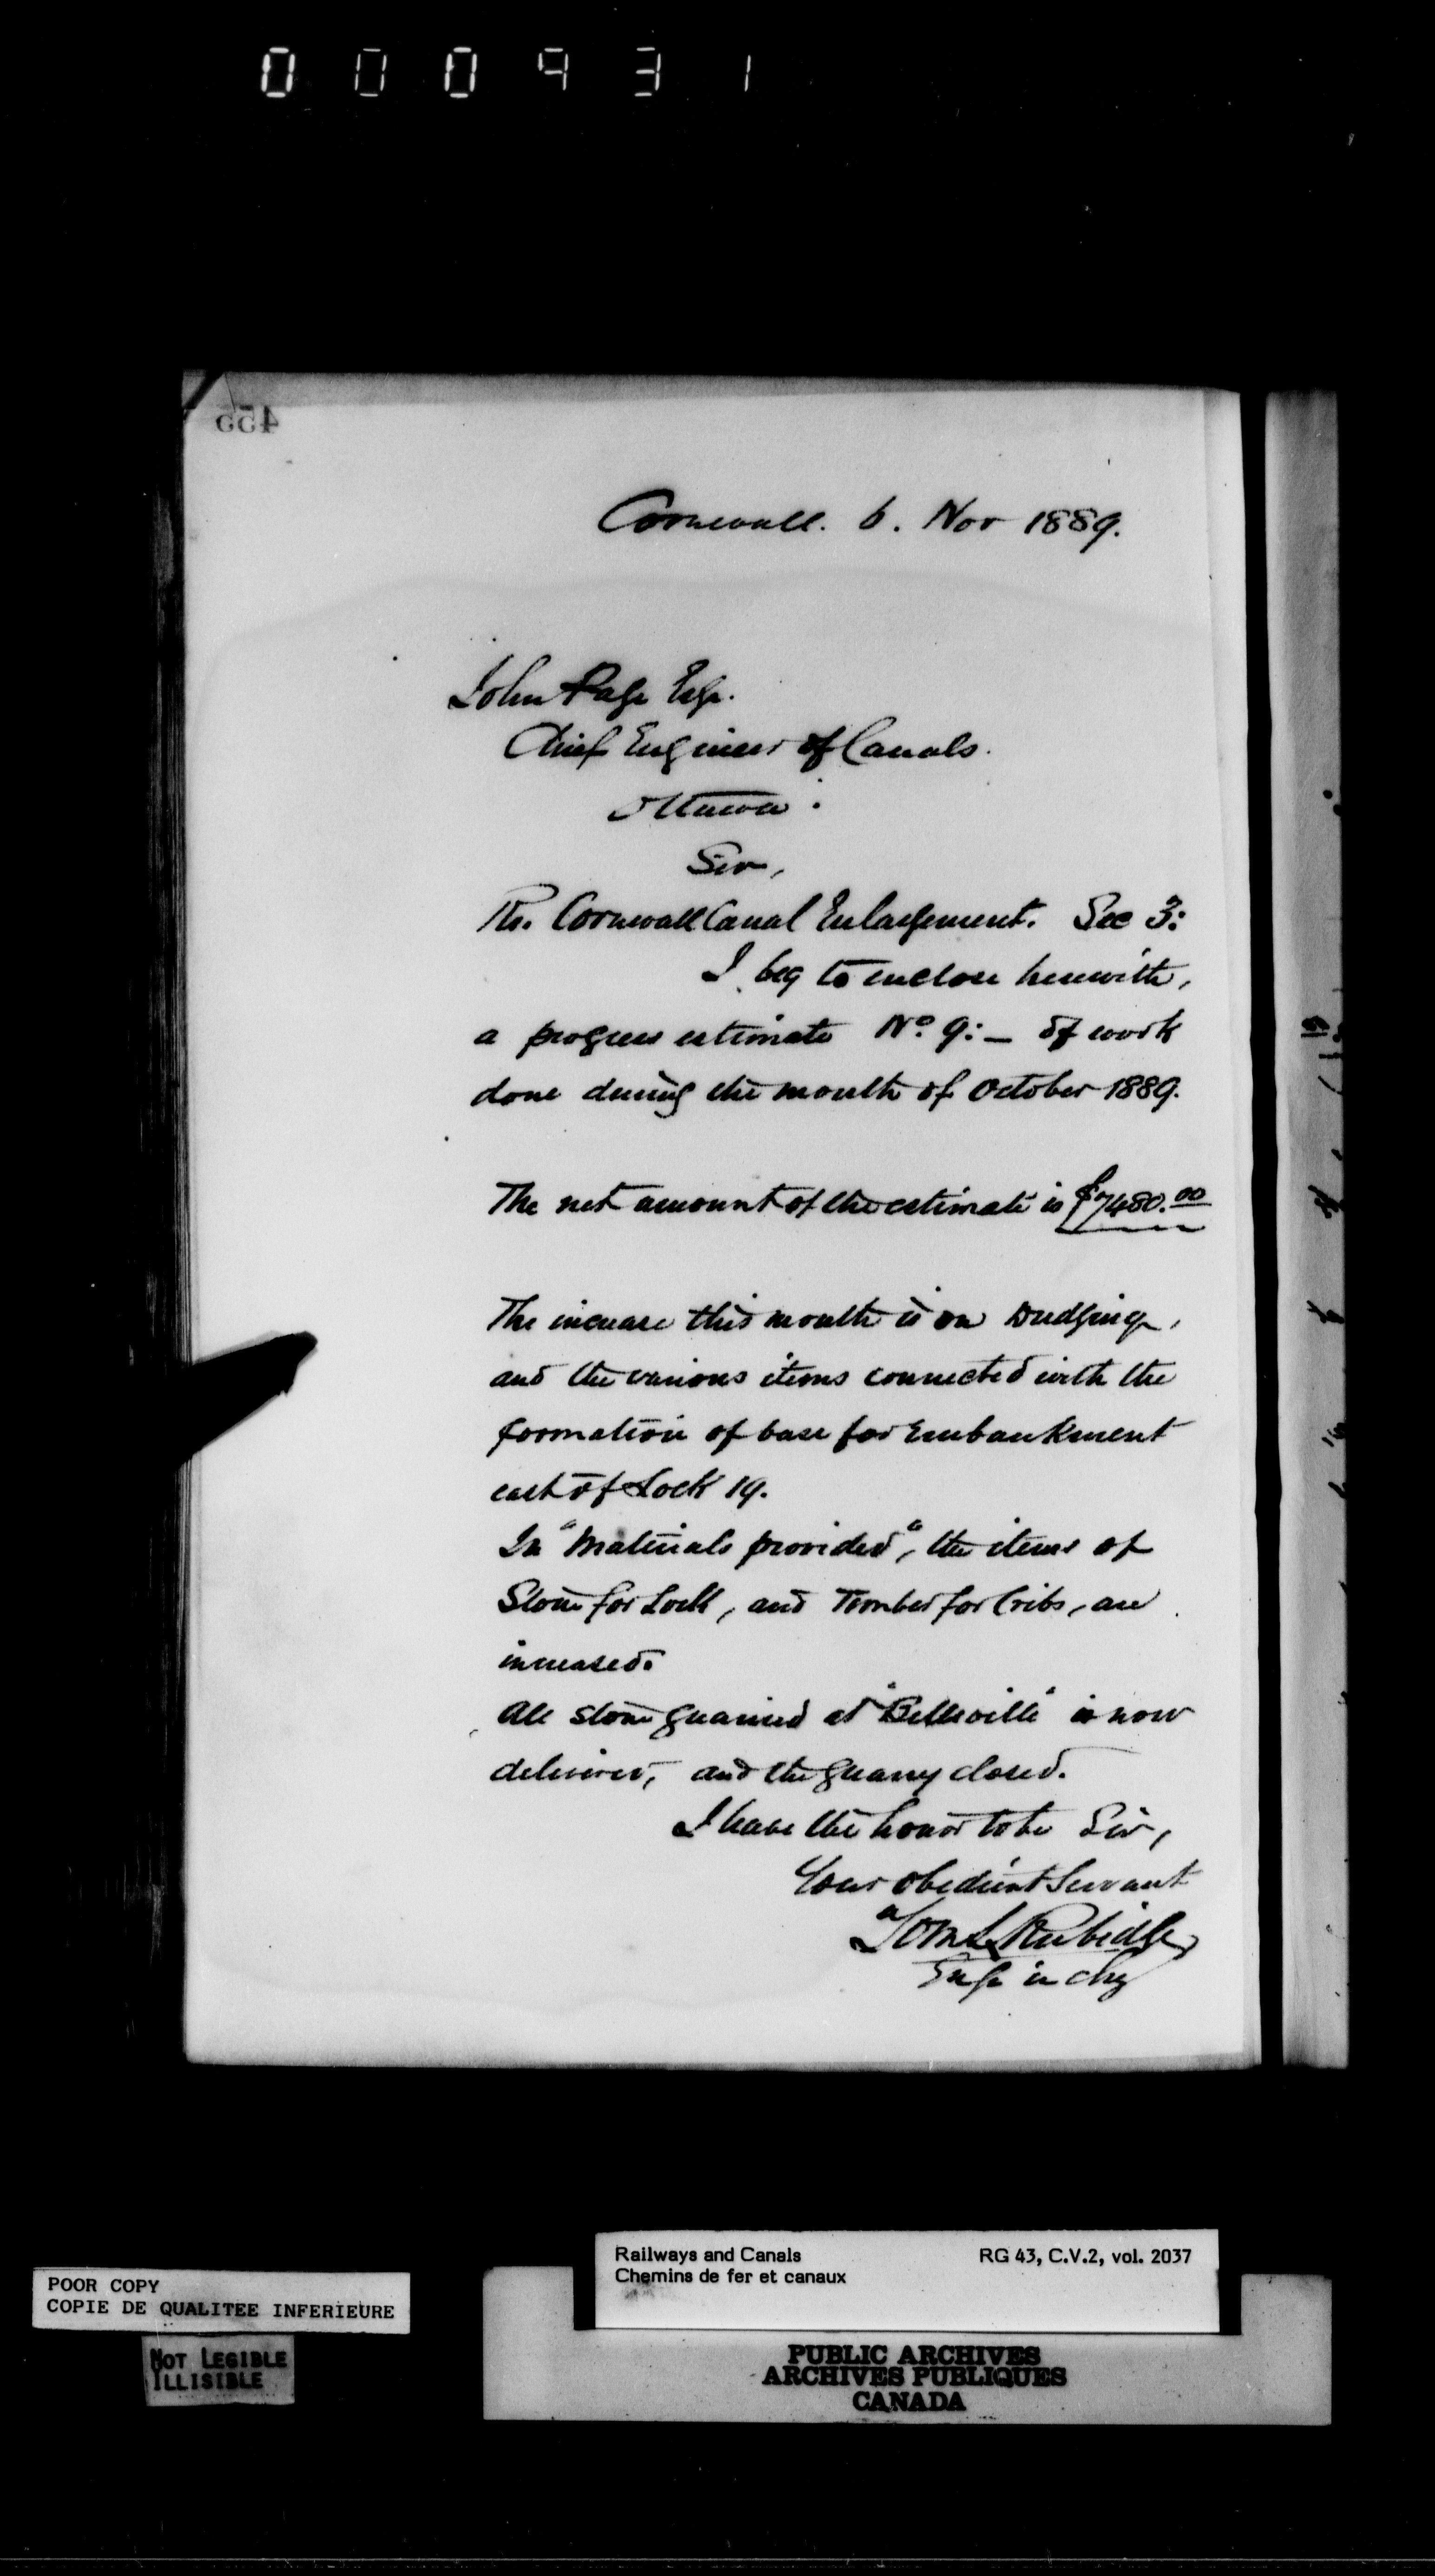 000931
455
Cornwall. 6. Nov 1889.
John Page Esqr.
Chief Engineer of Canals.
Ottawa:
Sir,
Re. Cornwall Canal Enlargement. Sec 3:
I beg to enclose herewith,
a progress estimate No. 9:— of work
done during the month of October 1889.
The net amount of the estimate is $7480.00
The increase this month is on Dredging,
and the various items connected with the
formation of base for Embankment
east of Lock 19.
In "Materials provided", the items of
Stone for Lock, and Timber for Cribs, are
increased.
All stone quarried at "Belleville" is now
deliver'd, and the quarry closed.
I have the honor to be Sir,
Your obedient Servant
Tom S Rubidge
Engr in chg
POOR COPY
COPIE DE QUALITEE INFERIEURE
NOT LEGIBLE
ILLISIBLE
Railways and Canals RG 43, C.V.2, vol. 2037
Chemins de fer et canaux
PUBLIC ARCHIVES
ARCHIVES PUBLIQUES
CANADA